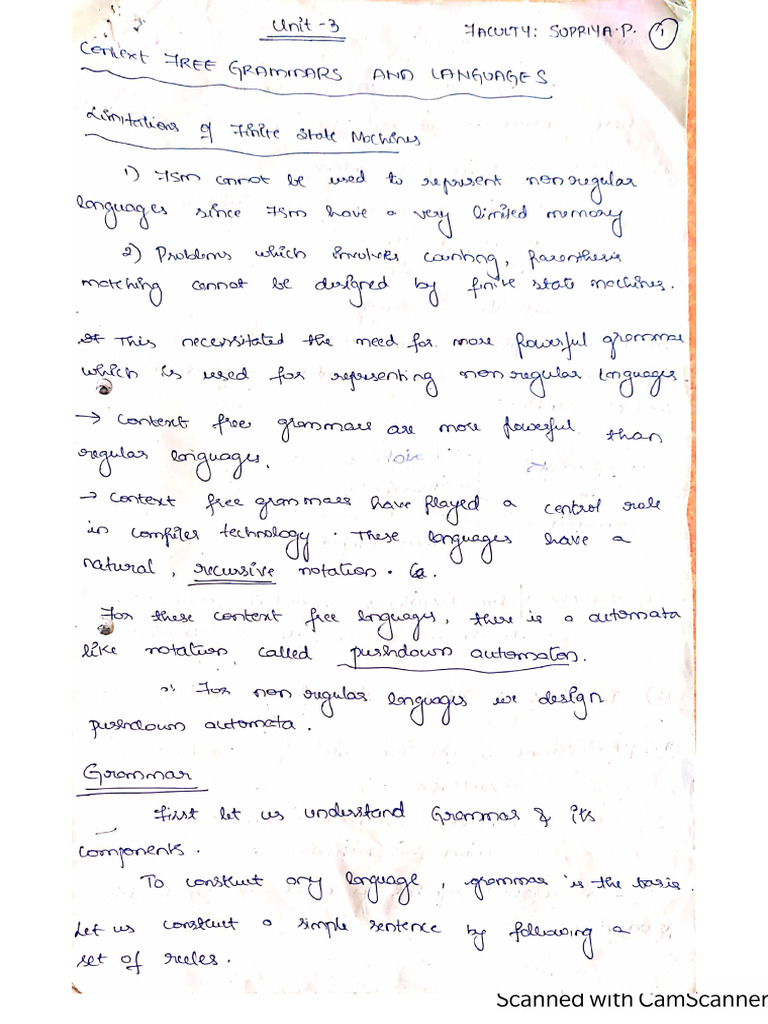 Unit-3
FACULTY: SUPRIYA.P. 1
CONTEXT FREE GRAMMARS AND LANGUAGES.
Limitations of Finite State Machines
1) FSM cannot be used to represent non regular
languages since FSM have a very limited memory
2) Problems which involves counting, parenthesis
matching cannot be designed by finite state machines.
This necessitated the need for more powerful grammar
which is used for representing non regular languages.
→ Context free grammars are more powerful than
regular languages.
→ Context free grammars have played a central role
in compiler technology. These languages have a
natural, recursive notation.
For these context free languages, there is a automata
like notation called pushdown automaton.
∴ For non regular languages we design
pushdown automata.
Grammar
First let us understand Grammar & its
components.
To construct any language, grammar is the basis.
Let us construct a simple sentence by following a
set of rules.
Scanned with CamScanner